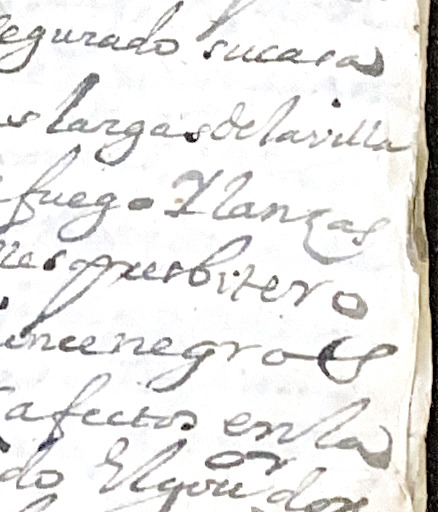 egurado su casa
s largas de la villa
fuego Y lanças
es presbitero
ince negros
afectos en la
do El gou.or don